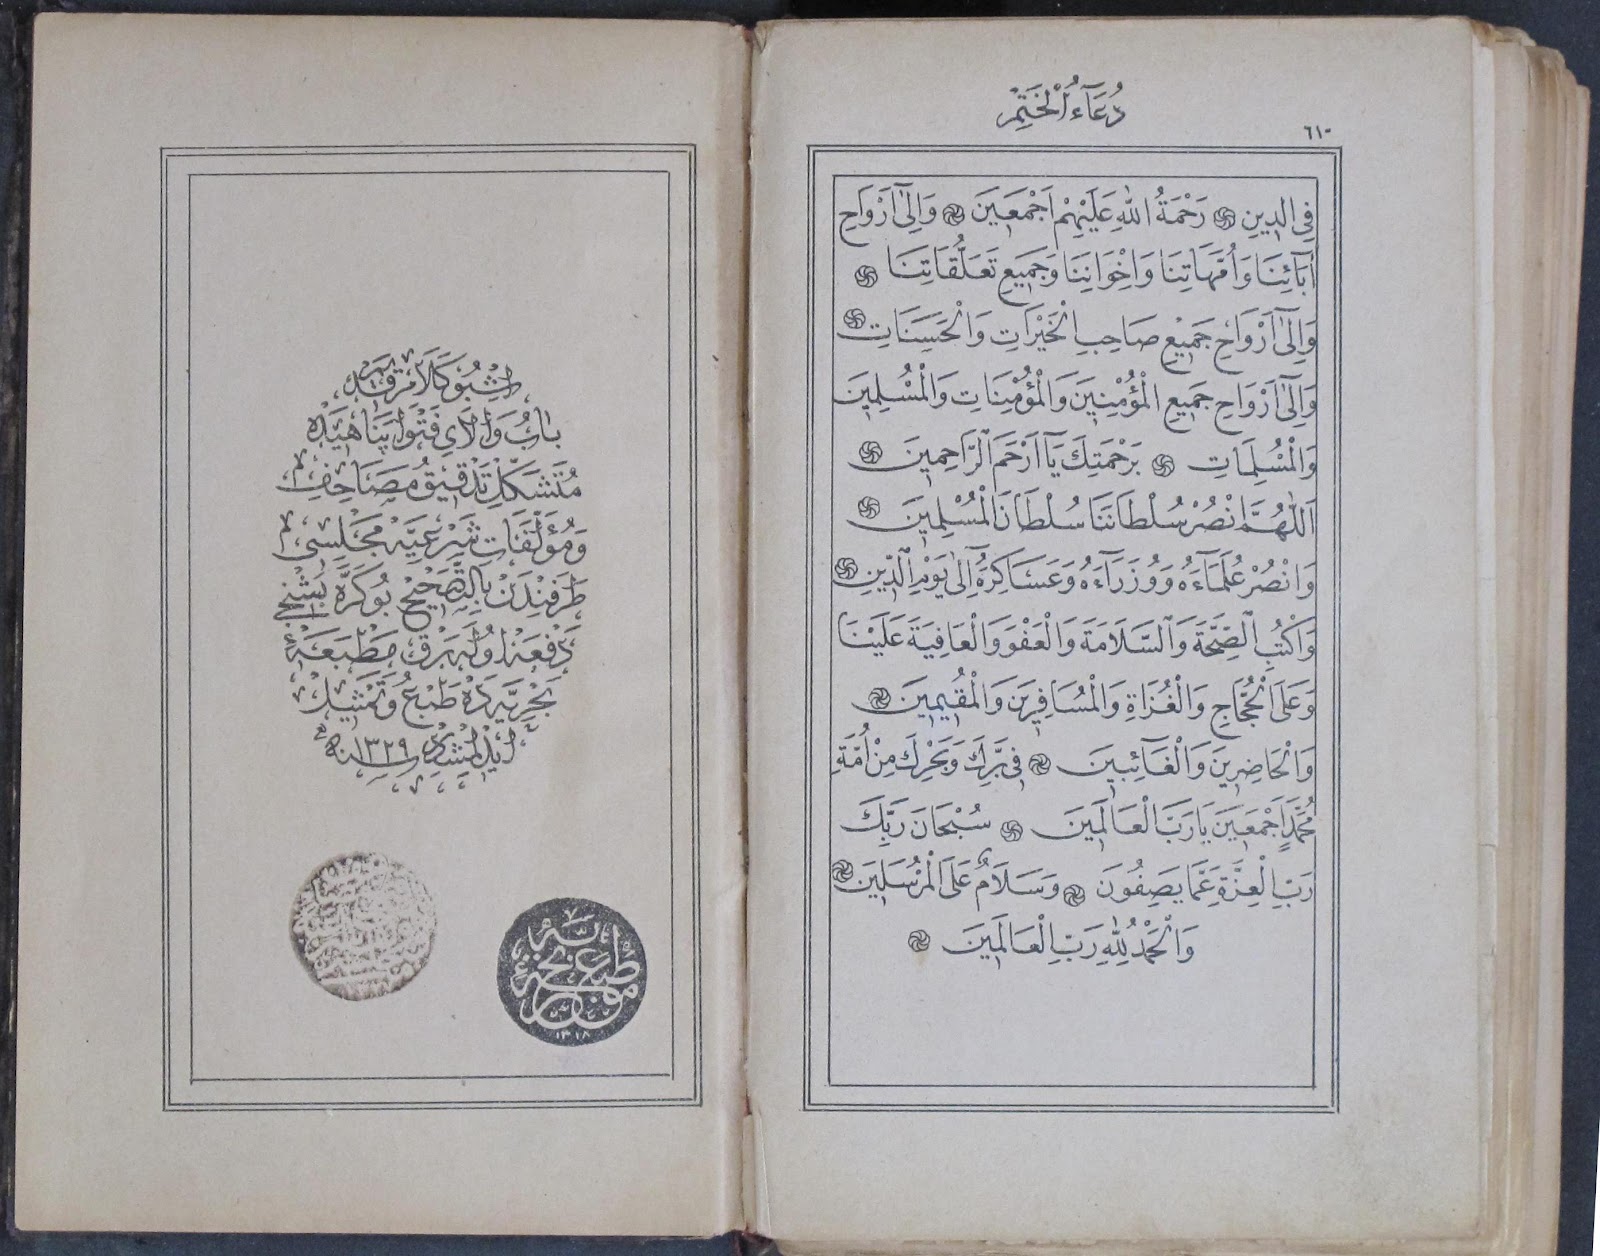 دُعَآءُ الْخَتِمْ
٦١٠
فِي الدِّينِ ۞ رَحْمَةُ اللهِ عَلَيْهِمْ اَجْمَعِينَ ۞ وَاِلٰى اَرْوَاحِ
اٰبَآئِنَا وَاُمَّهَاتِنَا وَاِخْوَانِنَا وَجَمِيعِ تَعَلُّقَاتِنَا ۞
وَاِلٰى اَرْوَاحِ جَمِيعِ صَاحِبِ الْخَيْرَاتِ وَالْحَسَنَاتِ ۞
وَاِلٰى اَرْوَاحِ جَمِيعِ الْمُؤْمِنِينَ وَالْمُؤْمِنَاتِ وَالْمُسْلِمِينَ
وَالْمُسْلِمَاتِ ۞ بِرَحْمَتِكَ يَآ اَرْحَمَ الرَّاحِمِينَ ۞
اَللّٰهُمَّ انْصُرْ سُلْطَانَنَا سُلْطَانَ الْمُسْلِمِينَ ۞
وَانْصُرْ عُلَمَآءَهُ وَوُزَرَآءَهُ وَعَسَاكِرَهُ اِلٰى يَوْمِ الدِّينِ ۞
وَاكْتُبِ الصِّحَّةَ وَالسَّلَامَةَ وَالْعَفْوَ وَالْعَافِيَةَ عَلَيْنَا
وَعَلَى الْحُجَّاجِ وَالْغُزَاةِ وَالْمُسَافِرِينَ وَالْمُقِيمِينَ ۞
وَالْحَاضِرِينَ وَالْغَآئِبِينَ ۞ فِي بَرِّكَ وَبَحْرِكَ مِنْ اُمَّةِ
مُحَمَّدٍ اَجْمَعِينَ يَا رَبَّ الْعَالَمِينَ ۞ سُبْحَانَ رَبِّكَ
رَبِّ الْعِزَّةِ عَمَّا يَصِفُونَ ۞ وَسَلَامٌ عَلَى الْمُرْسَلِينَ ۞
وَالْحَمْدُ لِلّٰهِ رَبِّ الْعَالَمِينَ ۞
اشْبُو كَلَامِ قَدِيمْ
بَابِ وَالَاىِ فَتْوَا پَنَاهِيدَه
مُتَشَكِّلْ تَدْقِيقِ مَصَاحِفْ
وَمُؤَلَّفَاتِ شَرْعِيَّه مَجْلِسِى
طَرَفِنْدَنْ بِالتَّصْحِيحْ بُو كَرَّه بَشِنْجِى
دَفْعَه اُولَهرَقْ مَطْبَعَهءِ
بَحْرِيَّهدَه طَبْعُ وَتَمْثِيلْ
اِيدِلْمِشْدِرْ سنه ١٣٢٩
مطبعه بحريه
١٣١٨